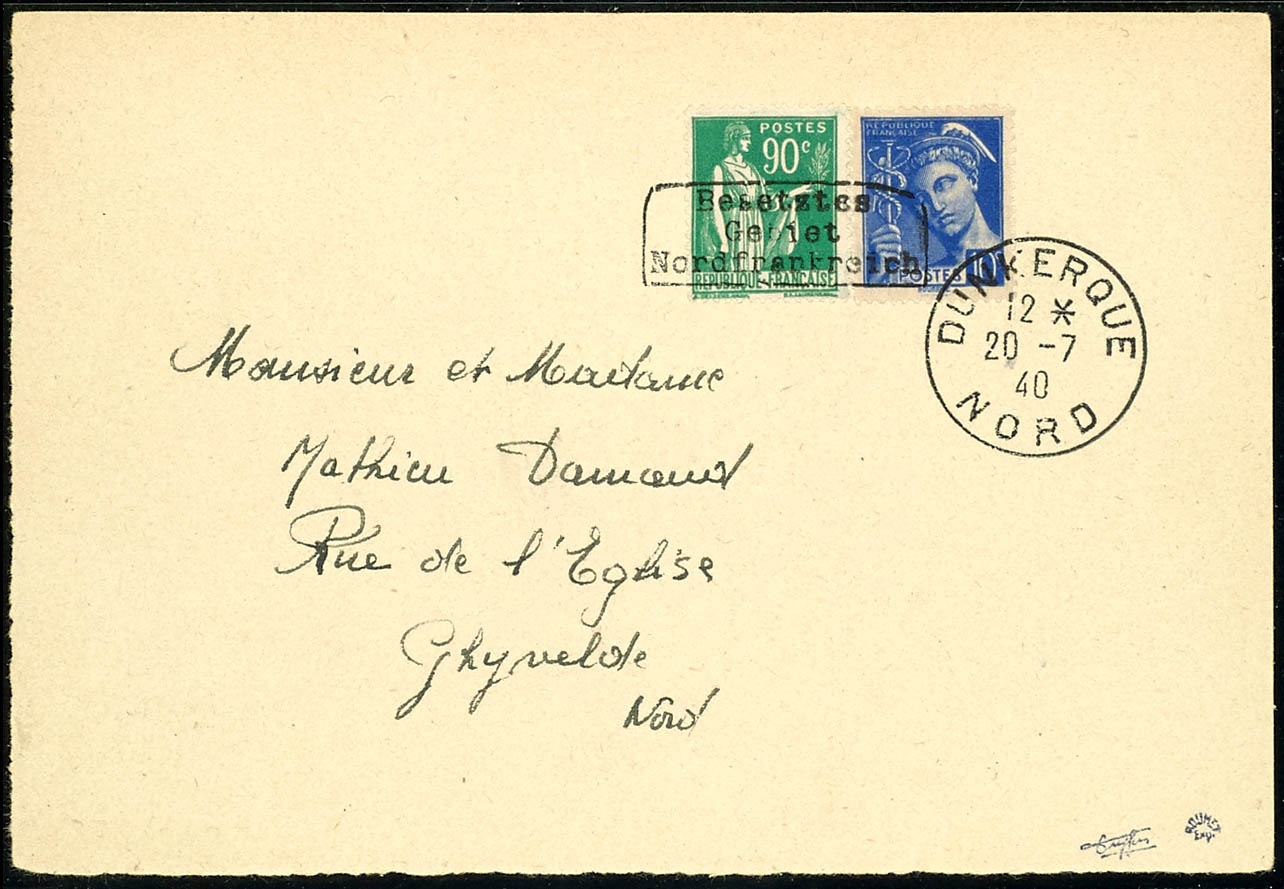 POSTES
90c
REPUBLIQUE FRANÇAISE
REPUBLIQUE
FRANÇAISE
POSTES 10
Besetztes
Gebiet
Nordfrankreich
DUNKERQUE
12 *
20 -7
40
NORD
Monsieur et Madame
Mathieu
Rue de l'Eglise
Ghyvelde
Nord
ROUMET
Exp.